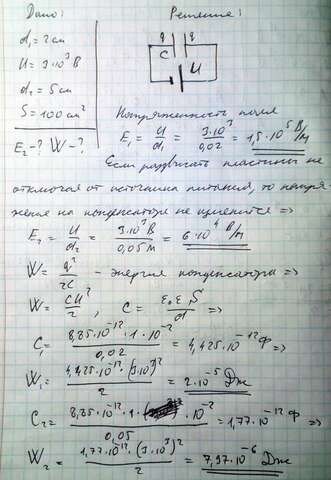 Дано: Решение:
d₁ = 2 см
U = 3·10³ В
d₂ = 5 см
S = 100 см²
E₂ - ? W - ?
q q
C
U
Напряженность поля
E₁ = U/d₁ = 3·10³/0,02 = 1,5·10⁵ В/м
Если раздвигать пластины не
отключая от источника питания, то напря
жение на конденсаторе не изменится =>
E₂ = U/d₂ = 3·10³В/0,05м = 6·10⁴ В/м
W = q²/2C - энергия конденсаторы =>
W = CU²/2, C = ε₀ε₁S/d =>
C₁ = 8,85·10⁻¹²·1·10⁻²/0,02 = 4,425·10⁻¹² Ф
W₁ = 4,425·10⁻¹²·(3·10³)²/2 = 2·10⁻⁵ Дж
C₂ = 8,85·10⁻¹²·1·10⁻²/0,05 = 1,77·10⁻¹² Ф =>
W₂ = 1,77·10⁻¹²·(3·10³)²/2 = 7,97·10⁻⁶ Дж